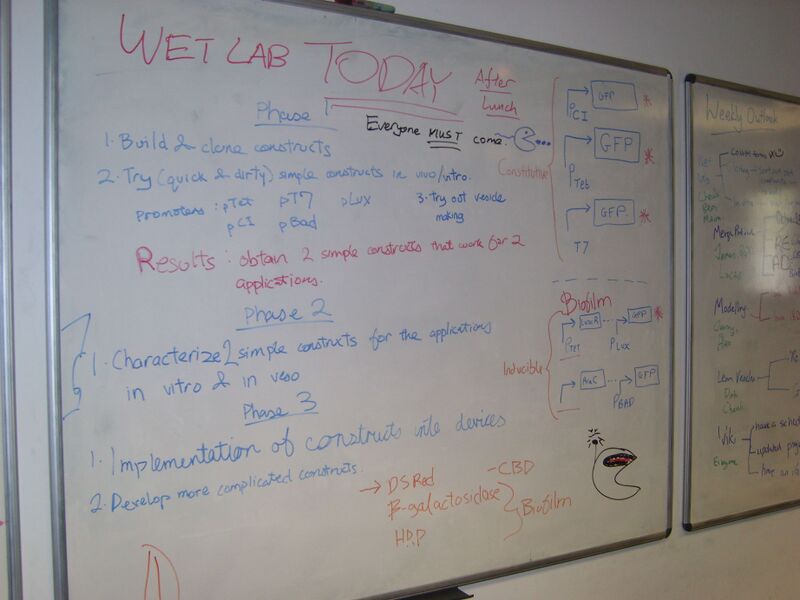 WET LAB TODAY After
Lunch
Phase 1
Everyone MUST come.
1. Build & clone constructs
2. Try (quick & dirty) simple constructs in vivo/vitro.
promoters : pTet pT7 pLux
pCI pBad
3. Try out vesicle
making
Results : obtain 2 simple constructs that work for 2
applications.
Phase 2
1. Characterize 2 simple constructs for the applications
in vitro & in veso
Phase 3
1. Implementation of constructs into devices
2. Develop more complicated constructs.
→ DSRed
β-galactosidase
-CBD
Biofilm
Constitutive
GFP
PCI
GFP
PTet
GFP
T7
Biofilm
Inducible
LuxR
GFP
PTET
PLUX
AraC
GFP
PBAD
Weekly Outlook
Merge
James
Lucas
Modelling
Wiki
have a
updated